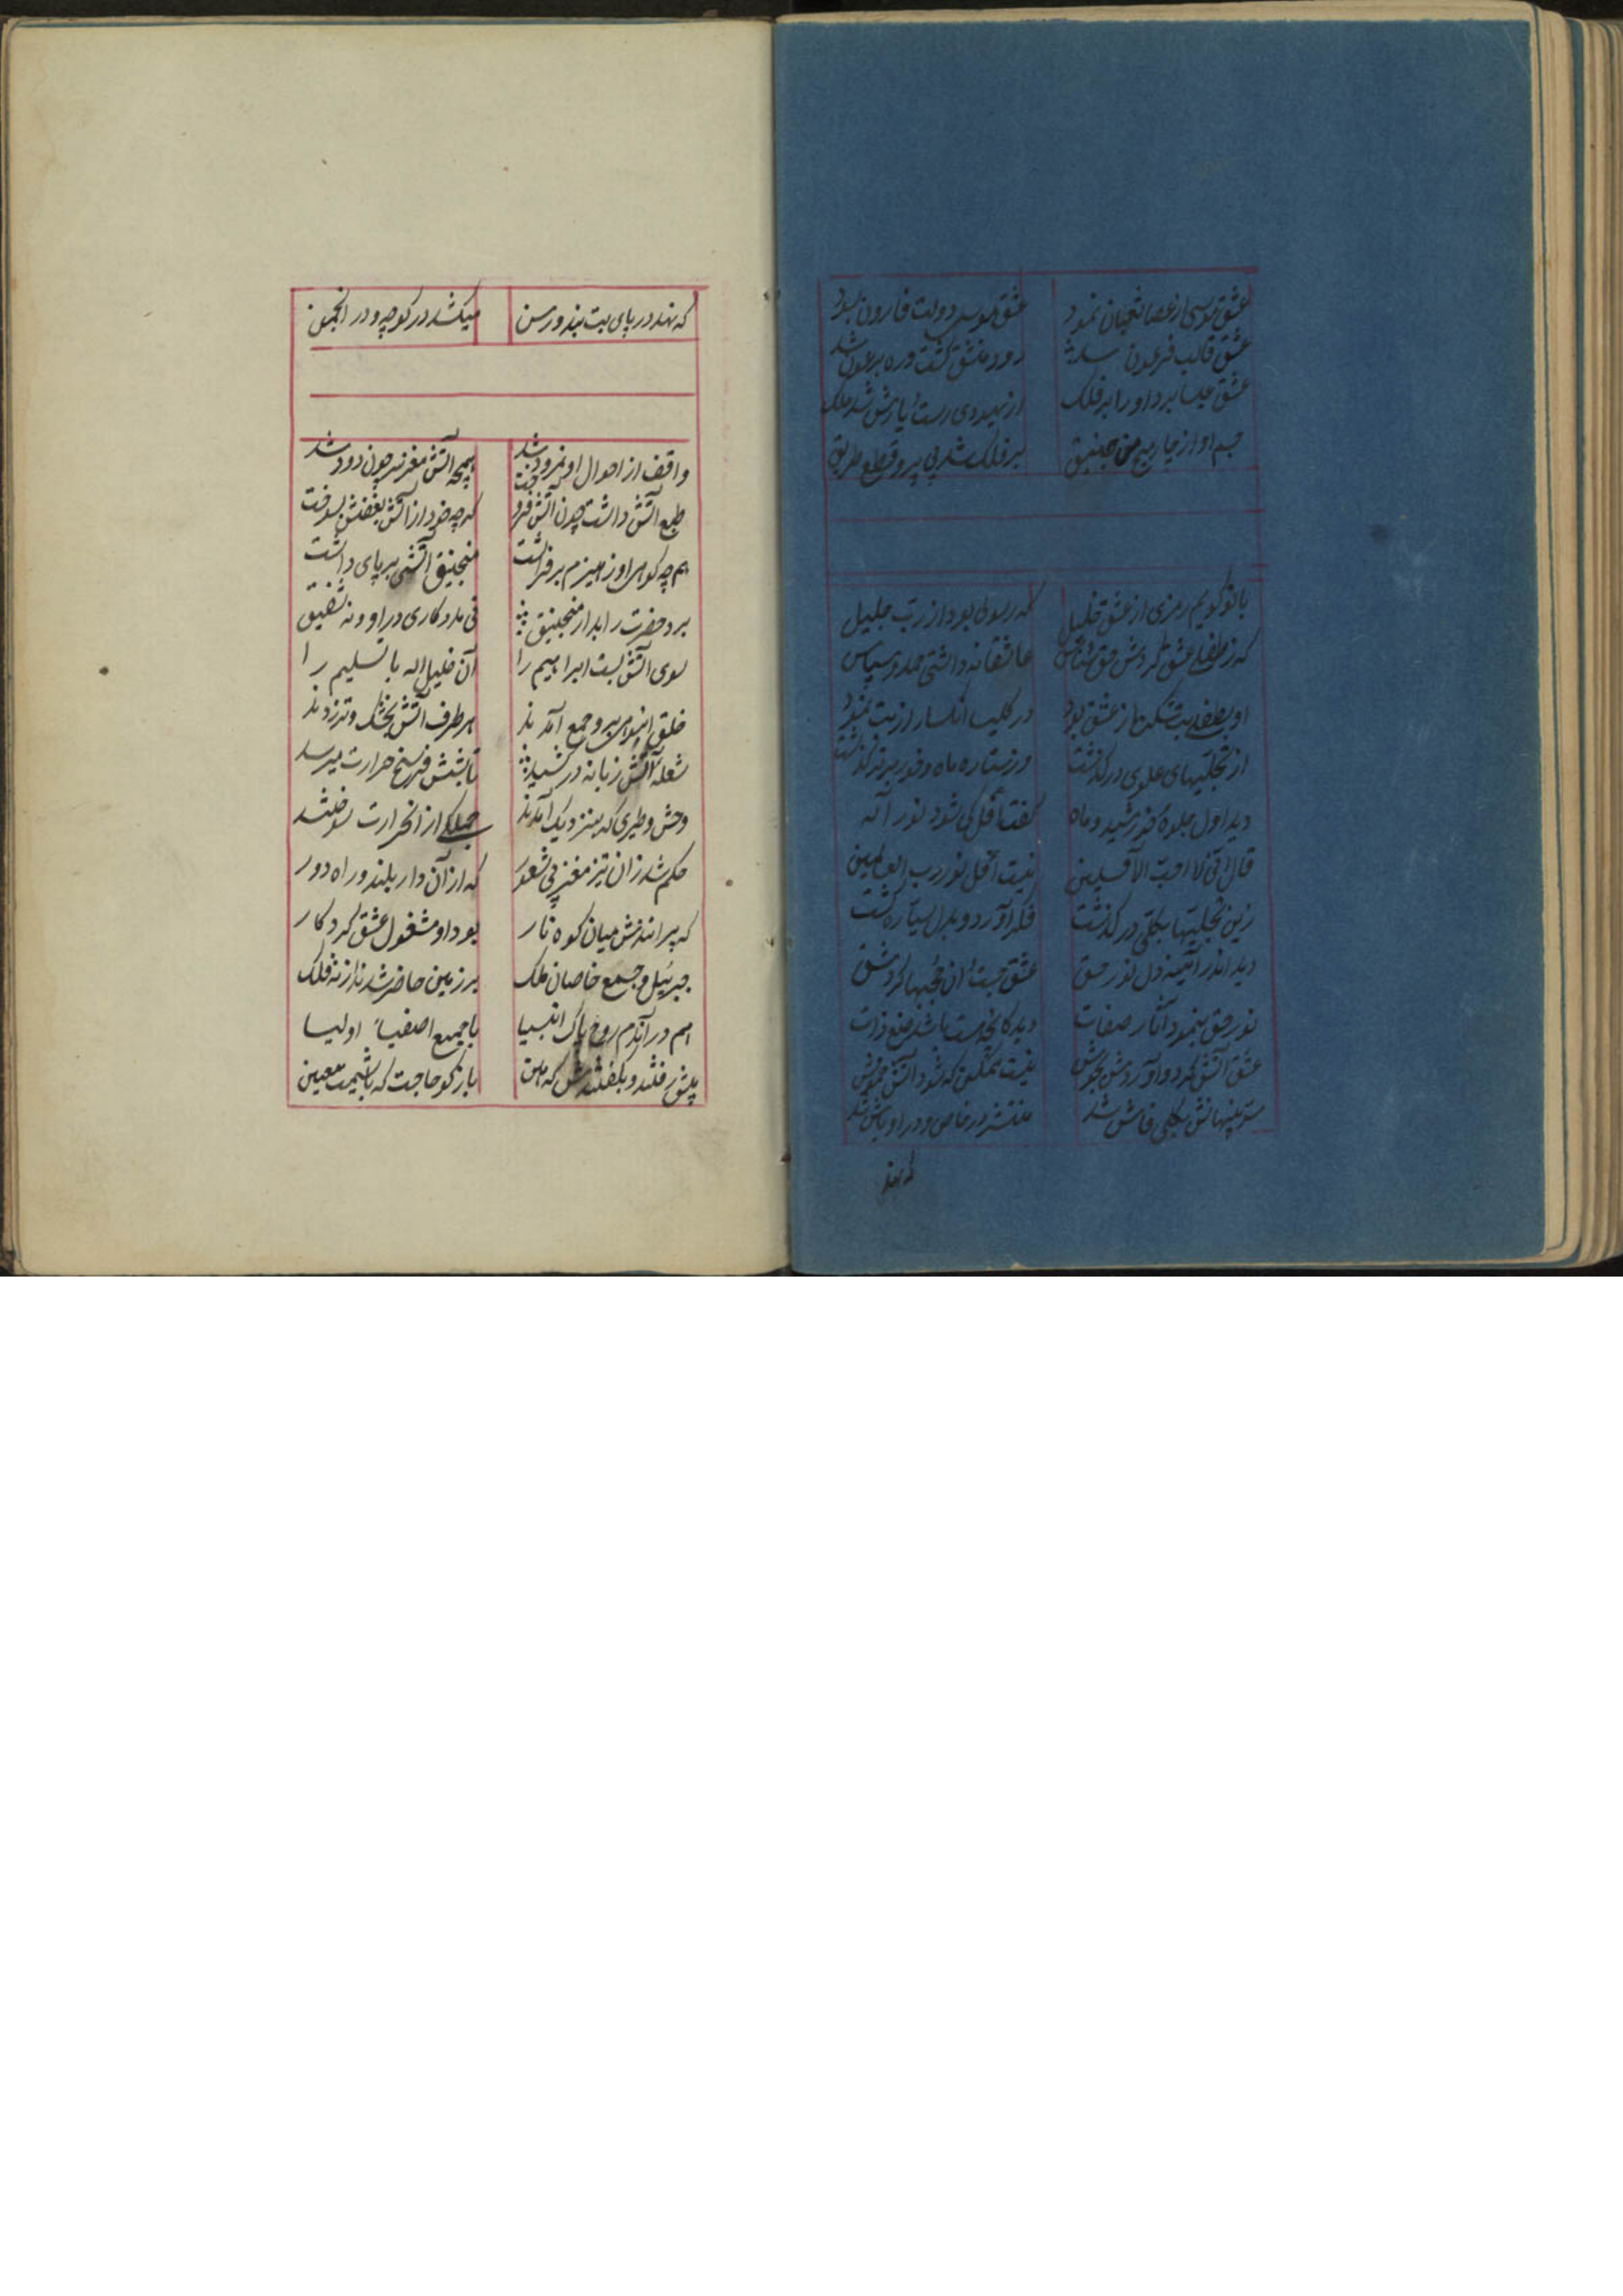 عشق موسی از عصا ثعبان نمود عشق موسی دولت قارون ربود
عشق قالب فرعون شد رود گشت و ره فرعون شد
عشق عیسا برد او را بر فلک از یهودی رست یارش شد ملک
جسم او از چار میخ بر فلک شد بی پر و قطع طریق
با تو گویم رمزی از عشق خلیل که رسولی بود از رب جلیل
که ز طفلی عشق کردش حق شناس عاشقانه داشتی حمد و سپاس
او بطفلی بت شکن از عشق بود در کلیسا انکسار از بت نمود
از تجلیهای علوی درگذشت وز ستاره ماه و خور برتر گذشت
دید اول جلوه خورشید و ماه گفت آفل کی شود نور آله
قال انی لا احب الآفلین نیست آفل نور رب العالمین
زین تجلیها بکلی درگذشت فکر آورد و بدل سیاره گشت
دید اندر آئینه دل نور حق عشق جست آن
نور حق بنمود آثار صفات دید باشد صنع ذات
عشق آتش کرد و آوردش بجوش نیست ممکن که شود آتش خموش
سر پنهانش بکلی فاش شد منتشر در خاص و در اوباش شد
که نهد
که نهد در پای بت بند و رسن میکشد در کوچه و در انجمن
واقف از احوال او نمرود شد همچه آتش مغز سر چون دود شد
طبع آتش داشت چون آتش فروخت کرچه خود از آتش بغضش بسوخت
هم چه کوهی او ز هیزم بر فراشت منجنیق آتشی بر پای داشت
برد حضرت را بدار منجنیق نی مددکاری در او و نه شفیق
سوی آتش بست ابراهیم را آن خلیل اله با تسلیم را
خلق انبوهی برو جمع آمدند هر طرف آتش بخشک و تر زدند
شعله آتش زبانه درکشید تابشش فرسخ حرارت میرسد
وحش و طیری که بنزدیک آمدند جملکی از انحرارت سوختند
حکم شد زان تیز مغز بی شعور که از آن دار بلند و راه دور
که پرانندش میان کوه نار بود او مشغول عشق کردکار
جبرئیل و جمع خاصان ملک بر زمین حاضر شدند از نه فلک
هم در آندم روح پاک انبیا با جمیع اصفیا اولیا
پیش رفتند و بگفتندش که هین بازگو حاجت که باشیمت معین